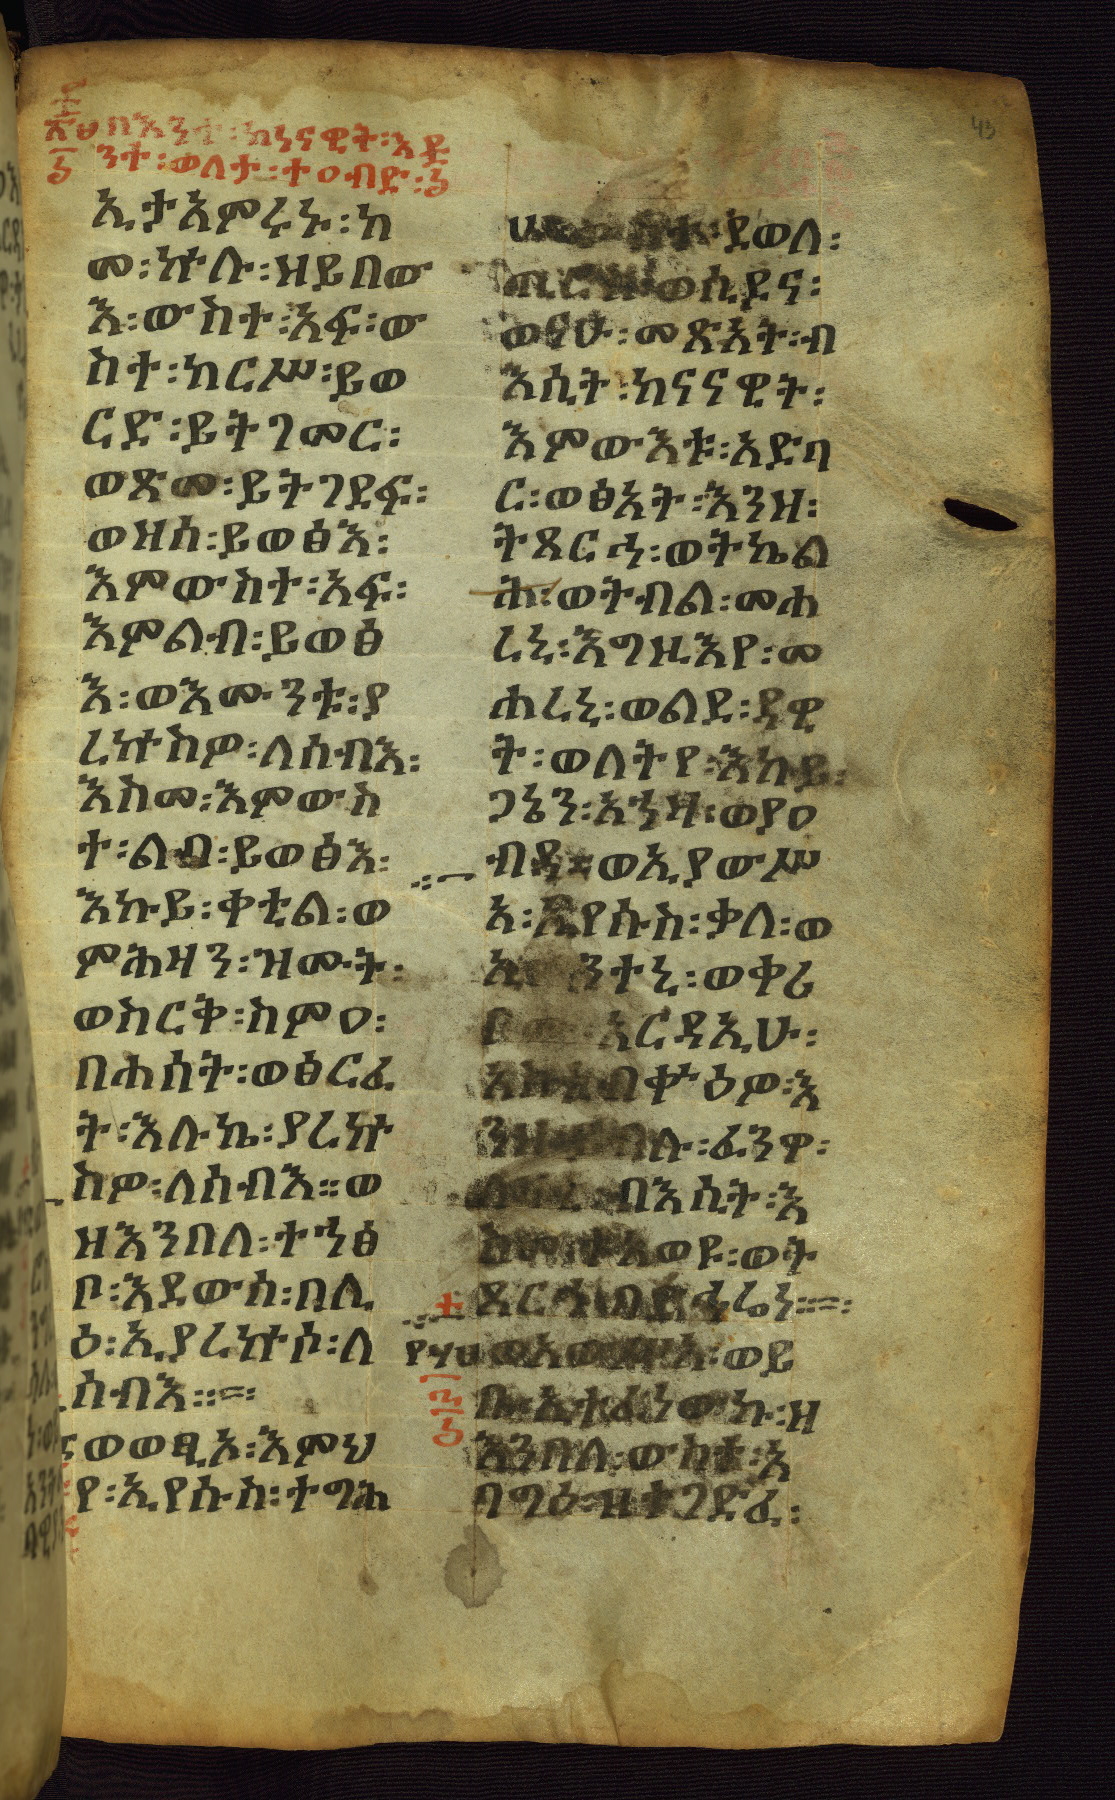 በእንተ፡ከነናዊት፡እደ
ንተ፡ወለታ፡ተዐብድ፡
ኢታአምሩኑ፡ከ
መ፡ኵሉ፡ዘይበው
እ፡ውስተ፡አፍ፡ው
ስተ፡ከርሥ፡ይወ
ርድ፡ይትገመር፡
ወጽመ፡ይትገደፍ፡
ወዘሰ፡ይወፅእ፡
እምውስተ፡አፍ፡
እምልብ፡ይወፅ
እ፡ወእሙንቱ፡ያ
ረኵስዎ፡ለሰብእ፡
እስመ፡እምውስ
ተ፡ልብ፡ይወፅእ፡
እኩይ፡ቀቲል፡ወ
ምሕዛን፡ዝሙት፡
ወስርቅ፡ስምዐ፡
በሐሰት፡ወፅርፈ
ት፡እሉኬ፡ያረኵ
ስዎ፡ለሰብእ።ወ
ዘእንበለ፡ተኀፅ
ቦ፡እደውሰ፡በሊ
ዕ፡ኢያረኵሶ፡ለ
ሰብእ።
ወወፂኦ፡እምህ
የ፡ኢየሱስ፡ተግሕ
ደወለ፡
ጢሮስ፡ወሲዶና፡
ወናሁ፡መጽአት፡ብ
እሲት፡ከናናዊት፡
እምውእቱ፡አድባ
ር፡ወፅአት፡እንዘ፡
ትጸርኅ፡ወትኬል
ሕ፡ወትብል፡መሐ
ረኒ፡እግዚእየ፡መ
ሐረኒ፡ወልደ፡ዳዊ
ት፡ወለትየ፡እኩይ፡
ጋኔን፡አኀዛ፡ወያዐ
ብዳ፡ወኢያውሥ
አ፡ኢየሱስ፡ቃለ፡ወ
ንተኒ፡ወቀሪ
አርዳኢሁ፡
አስተብቍዕዎ፡እ
ንዘ፡ይብሉ፡ፈንዋ፡
በእሲት፡እ
ስመ፡ትአወዩ፡ወት
ጸርኅ፡በድኅሬነ።
ወአውሥአ፡ወይ
ቤ፡ኢተፈነውኩ፡ዘ
እንበለ፡ውስተ፡አ
ባግዕ፡ዘተገድፈ፡
43